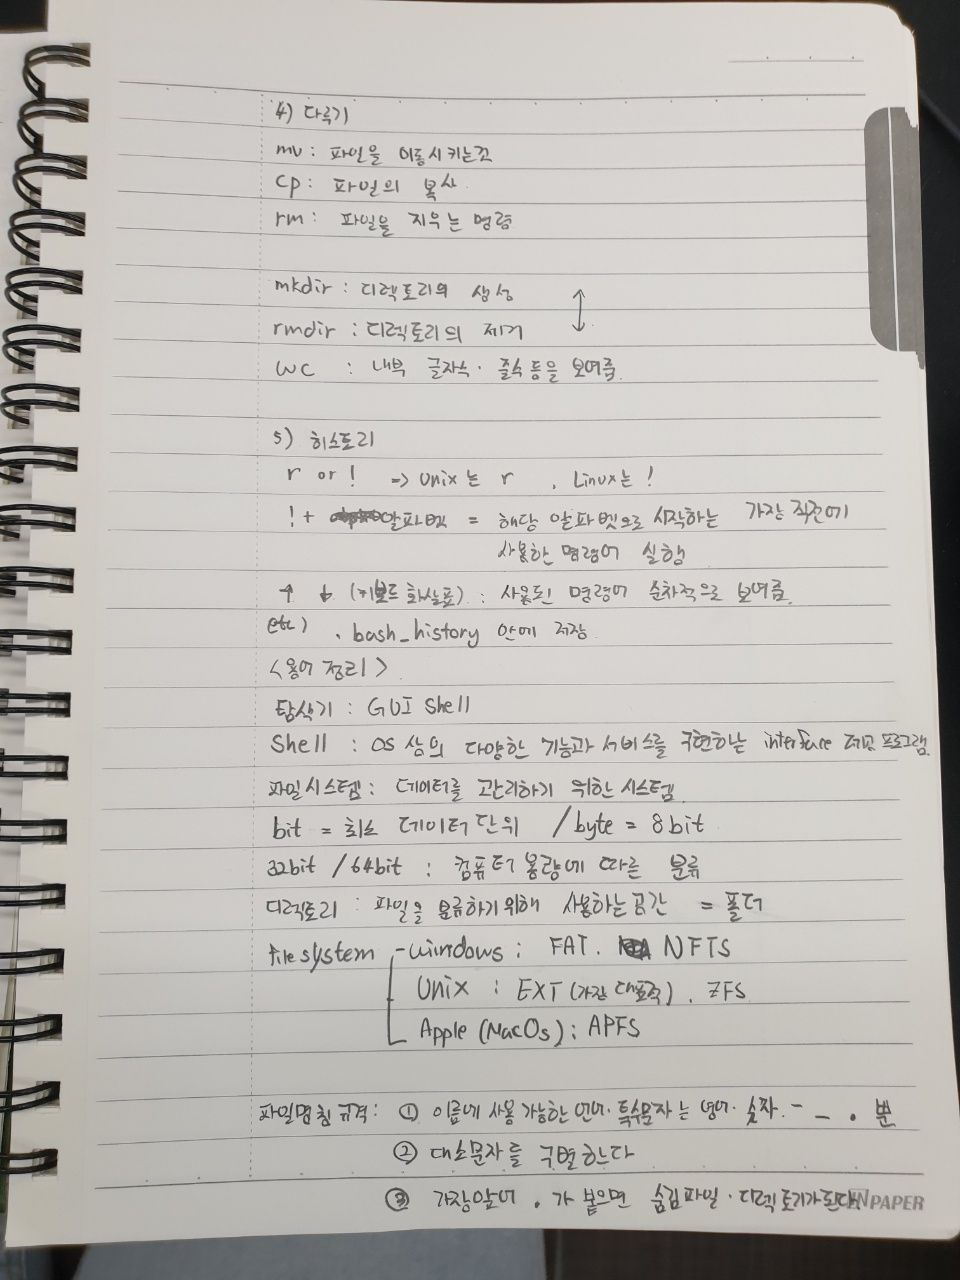 4) 다루기
mv : 파일을 이동시키는것
cp : 파일의 복사
rm : 파일을 지우는 명령
mkdir : 디렉토리의 생성
rmdir : 디렉토리의 제거
wc : 내부 글자수· 줄수 등을 보여줌
5) 히스토리
r or ! => Unix는 r , Linux는 !
! + 알파벳 = 해당 알파벳으로 시작하는 가장 직전에
사용한 명령어 실행
↑ ↓ (키보드 화살표) : 사용된 명령어 순차적으로 보여줌
etc) .bash_history 안에 저장
<용어 정리>
탐색기 : GUI Shell
Shell : OS 상의 다양한 기능과 서비스를 구현하는 interface 제공 프로그램
파일시스템 : 데이터를 관리하기 위한 시스템
bit = 최소 데이터 단위 / byte = 8bit
32bit / 64bit : 컴퓨터 용량에 따른 분류
디렉토리 : 파일을 분류하기위해 사용하는 공간 = 폴더
File system - windows : FAT. NFTS
Unix : EXT (가장 대표적) . ZFS
Apple (MacOs) : APFS
파일명칭 규격 : ① 이름에 사용 가능한 언어·특수문자는 영어· 숫자. - _ . 뿐
② 대소문자를 구별한다
③ 가장앞에 . 가 붙으면 숨김파일·디렉토리가된다.
PAPER